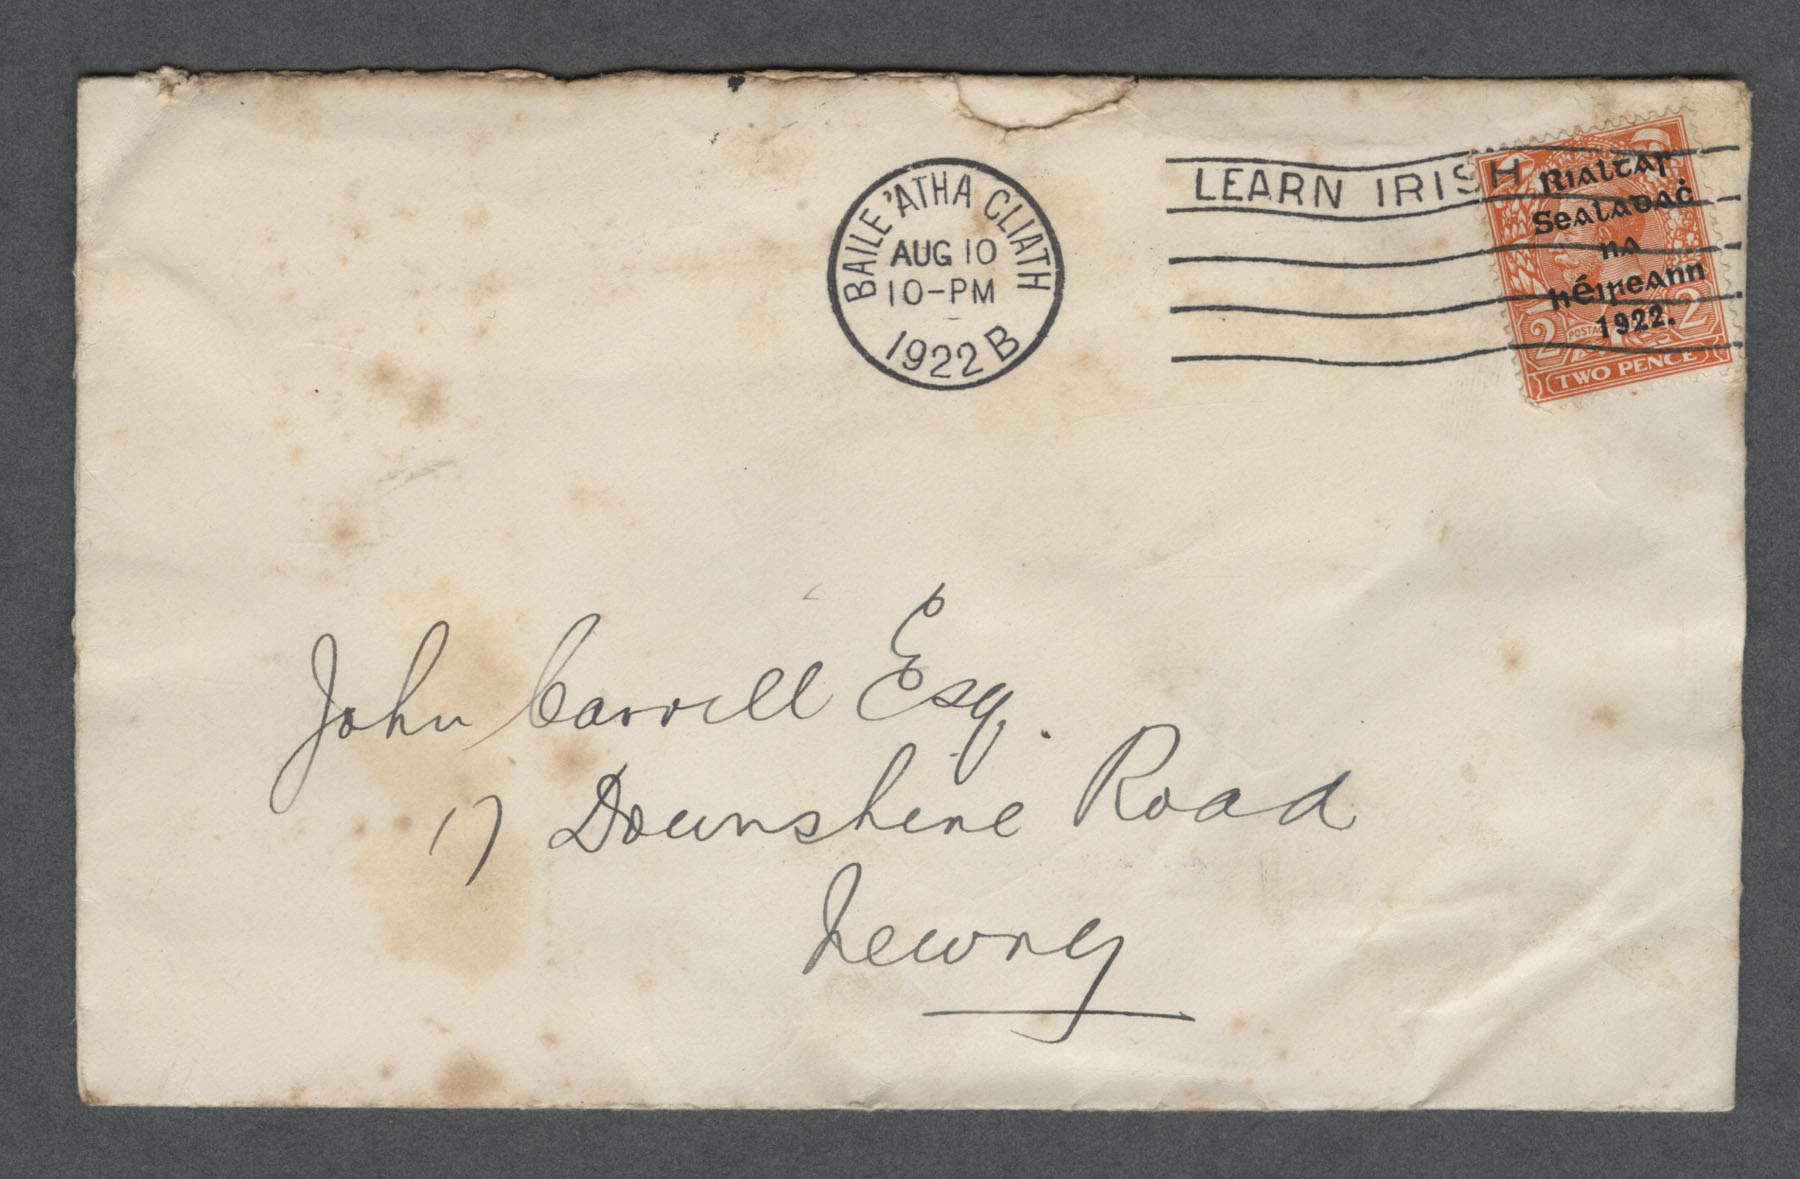 BAILE 'ATHA CLIATH
AUG 10
10-PM
1922 B
LEARN IRISH
Rialtas
Sealadaċ
na
hÉireann
1922.
2 POSTAGE 2
TWO PENCE
John Carvill Esq.
17 Downshire Road
Newry